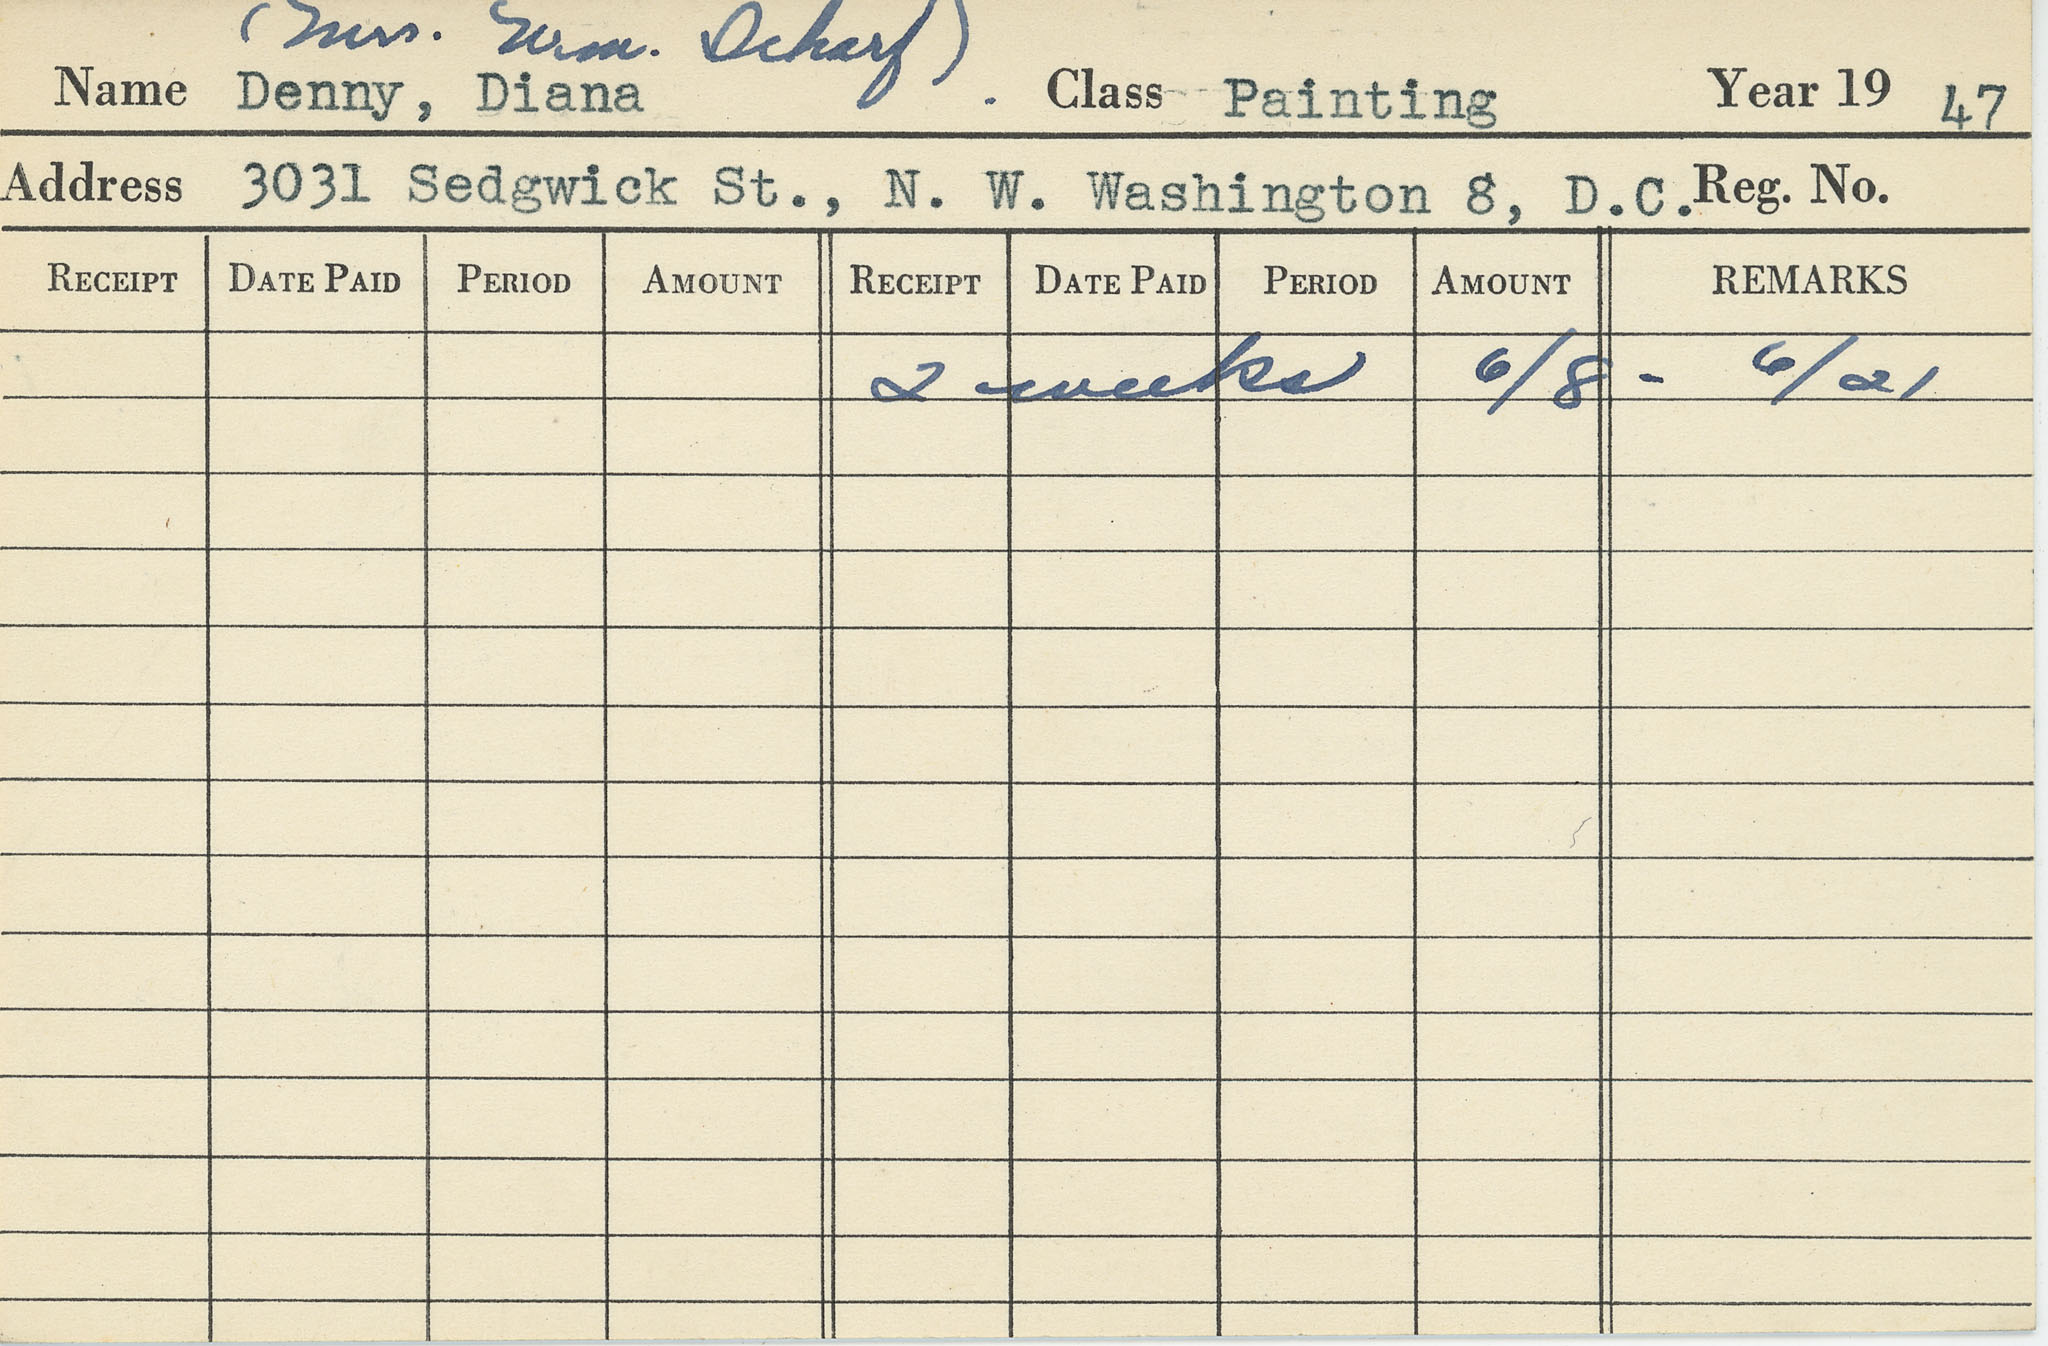 (Mrs. Wm. Scharf)
Name Denny, Diana . Class Painting Year 19 47
Address 3031 Sedgwick St., N. W. Washington 8, D.C. Reg. No.
RECEIPT DATE PAID PERIOD AMOUNT RECEIPT DATE PAID PERIOD AMOUNT REMARKS
2 weeks 6/8 - 6/21